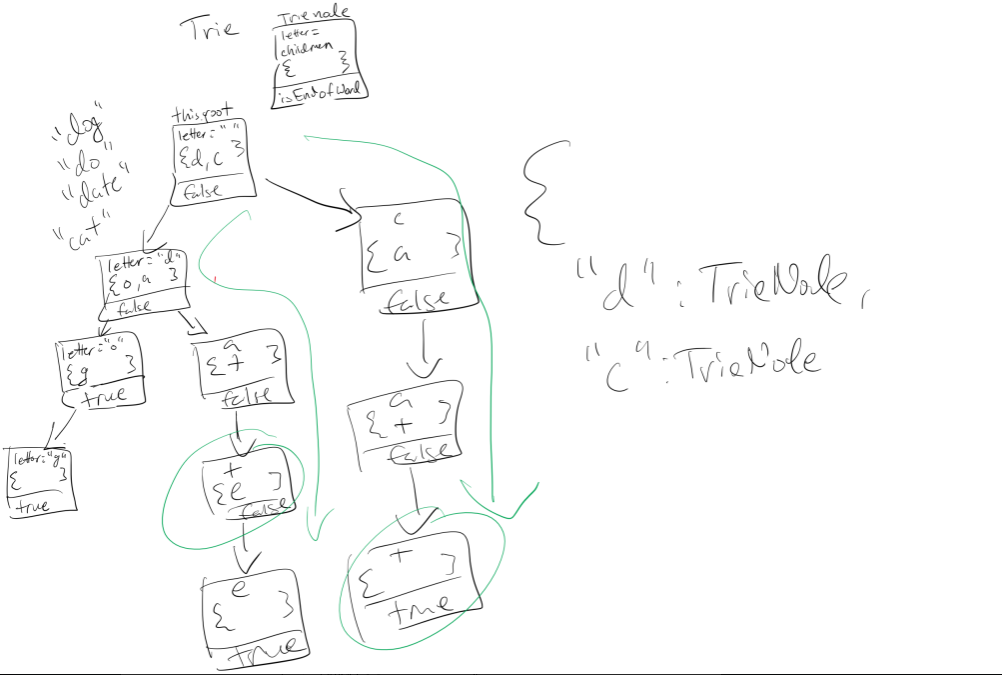 Trie
Trienode
letter=
children
{ }
isEndofWord
"dog"
"do"
"date"
"cat"
this.root
letter=" "
{d,c }
false
letter="d"
{o,a }
false
c
{a }
false
letter="o"
{g }
true
a
{t }
false
a
{t }
false
letter="g"
{ }
true
t
{e }
false
t
{ }
true
e
{ }
true
{
"d": TrieNode,
"c": TrieNode